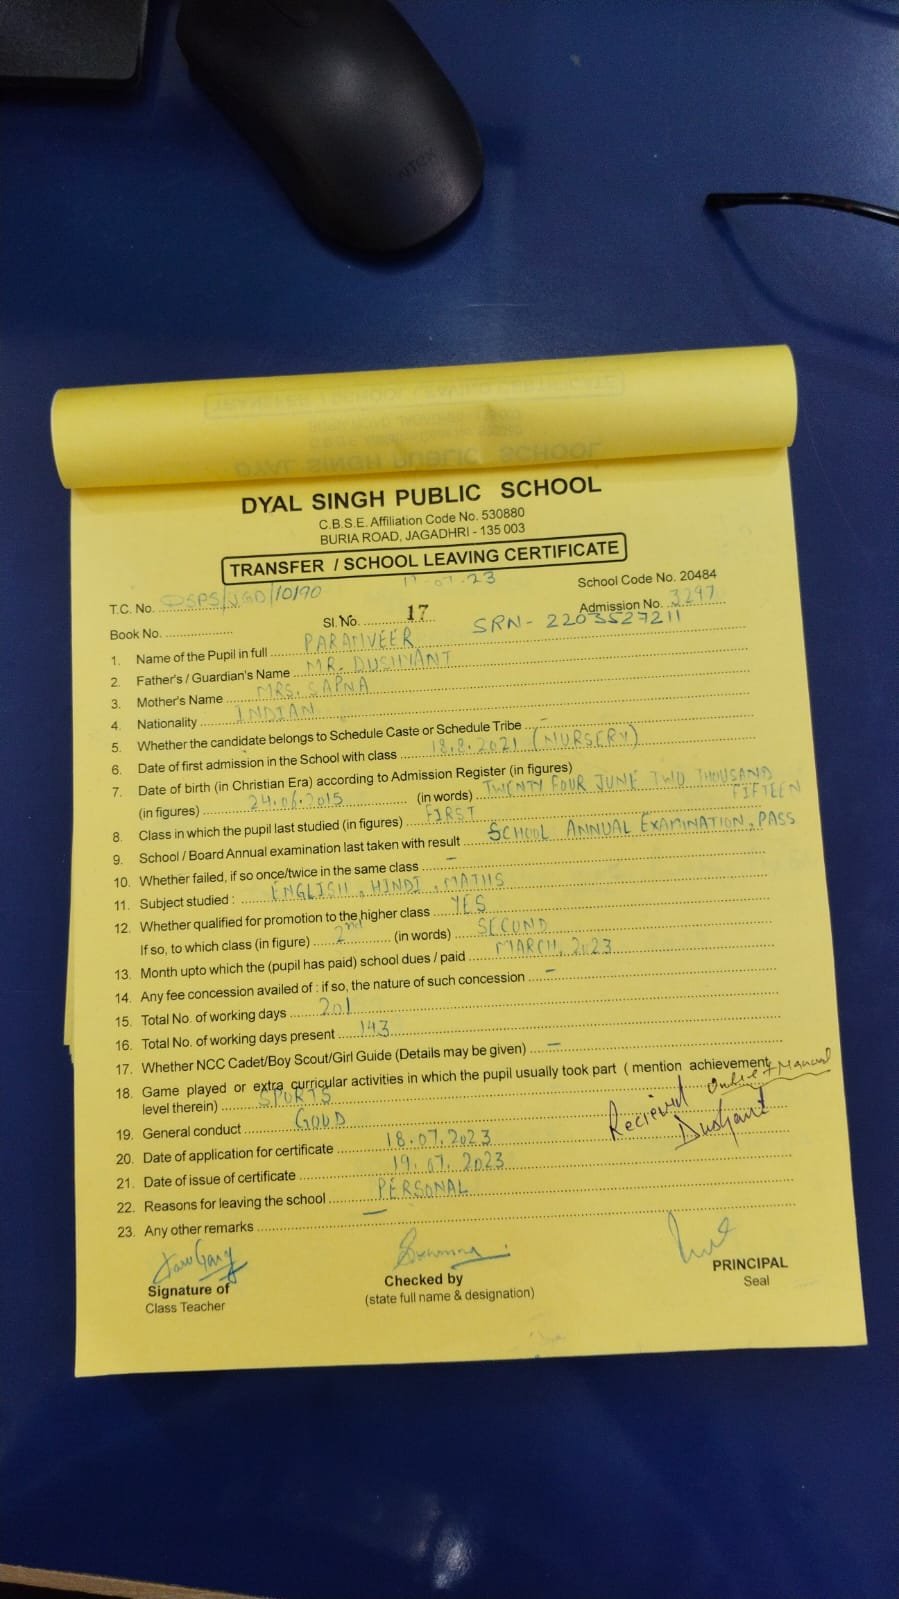 DYAL SINGH PUBLIC SCHOOL
C.B.S.E. Affiliation Code No. 530880
BURIA ROAD, JAGADHRI - 135 003
TRANSFER / SCHOOL LEAVING CERTIFICATE
School Code No. 20484
T.C. No. DSPS/JGD/10190
Admission No. 3297
Book No. .................. Sl. No. 17
SRN- 2203527211
1. Name of the Pupil in full PARAMVEER
2. Father's / Guardian's Name MR. DUSHYANT
3. Mother's Name MRS. SAPNA
4. Nationality INDIAN
5. Whether the candidate belongs to Schedule Caste or Schedule Tribe -
6. Date of first admission in the School with class 18.8.2021 (NURSERY)
7. Date of birth (in Christian Era) according to Admission Register (in figures)
(in figures) 24.06.2015 (in words) TWENTY FOUR JUNE TWO THOUSAND
FIFTEEN
8. Class in which the pupil last studied (in figures) FIRST
9. School / Board Annual examination last taken with result SCHOOL ANNUAL EXAMINATION, PASS
10. Whether failed, if so once/twice in the same class -
11. Subject studied : ENGLISH, HINDI, MATHS
12. Whether qualified for promotion to the higher class YES
If so, to which class (in figure) 2nd (in words) SECOND
13. Month upto which the (pupil has paid) school dues / paid MARCH, 2023
14. Any fee concession availed of : if so, the nature of such concession -
15. Total No. of working days 201
16. Total No. of working days present 143
17. Whether NCC Cadet/Boy Scout/Girl Guide (Details may be given) -
18. Game played or extra curricular activities in which the pupil usually took part ( mention achievement
level therein) SPORTS
19. General conduct GOOD
Recieved Online + Manual
Dushyant
20. Date of application for certificate 18.07.2023
21. Date of issue of certificate 19.07.2023
22. Reasons for leaving the school PERSONAL
23. Any other remarks -
Signature of
Class Teacher
Checked by
(state full name & designation)
PRINCIPAL
Seal